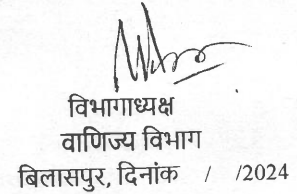 विभागाध्यक्ष
वाणिज्य विभाग
बिलासपुर, दिनांक / /2024